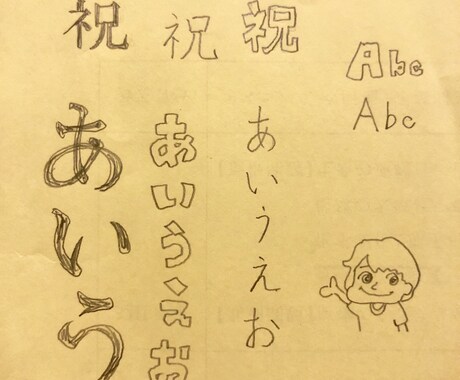 祝
祝
祝
Abc
Abc
あいう
あいうえお
あいうえお